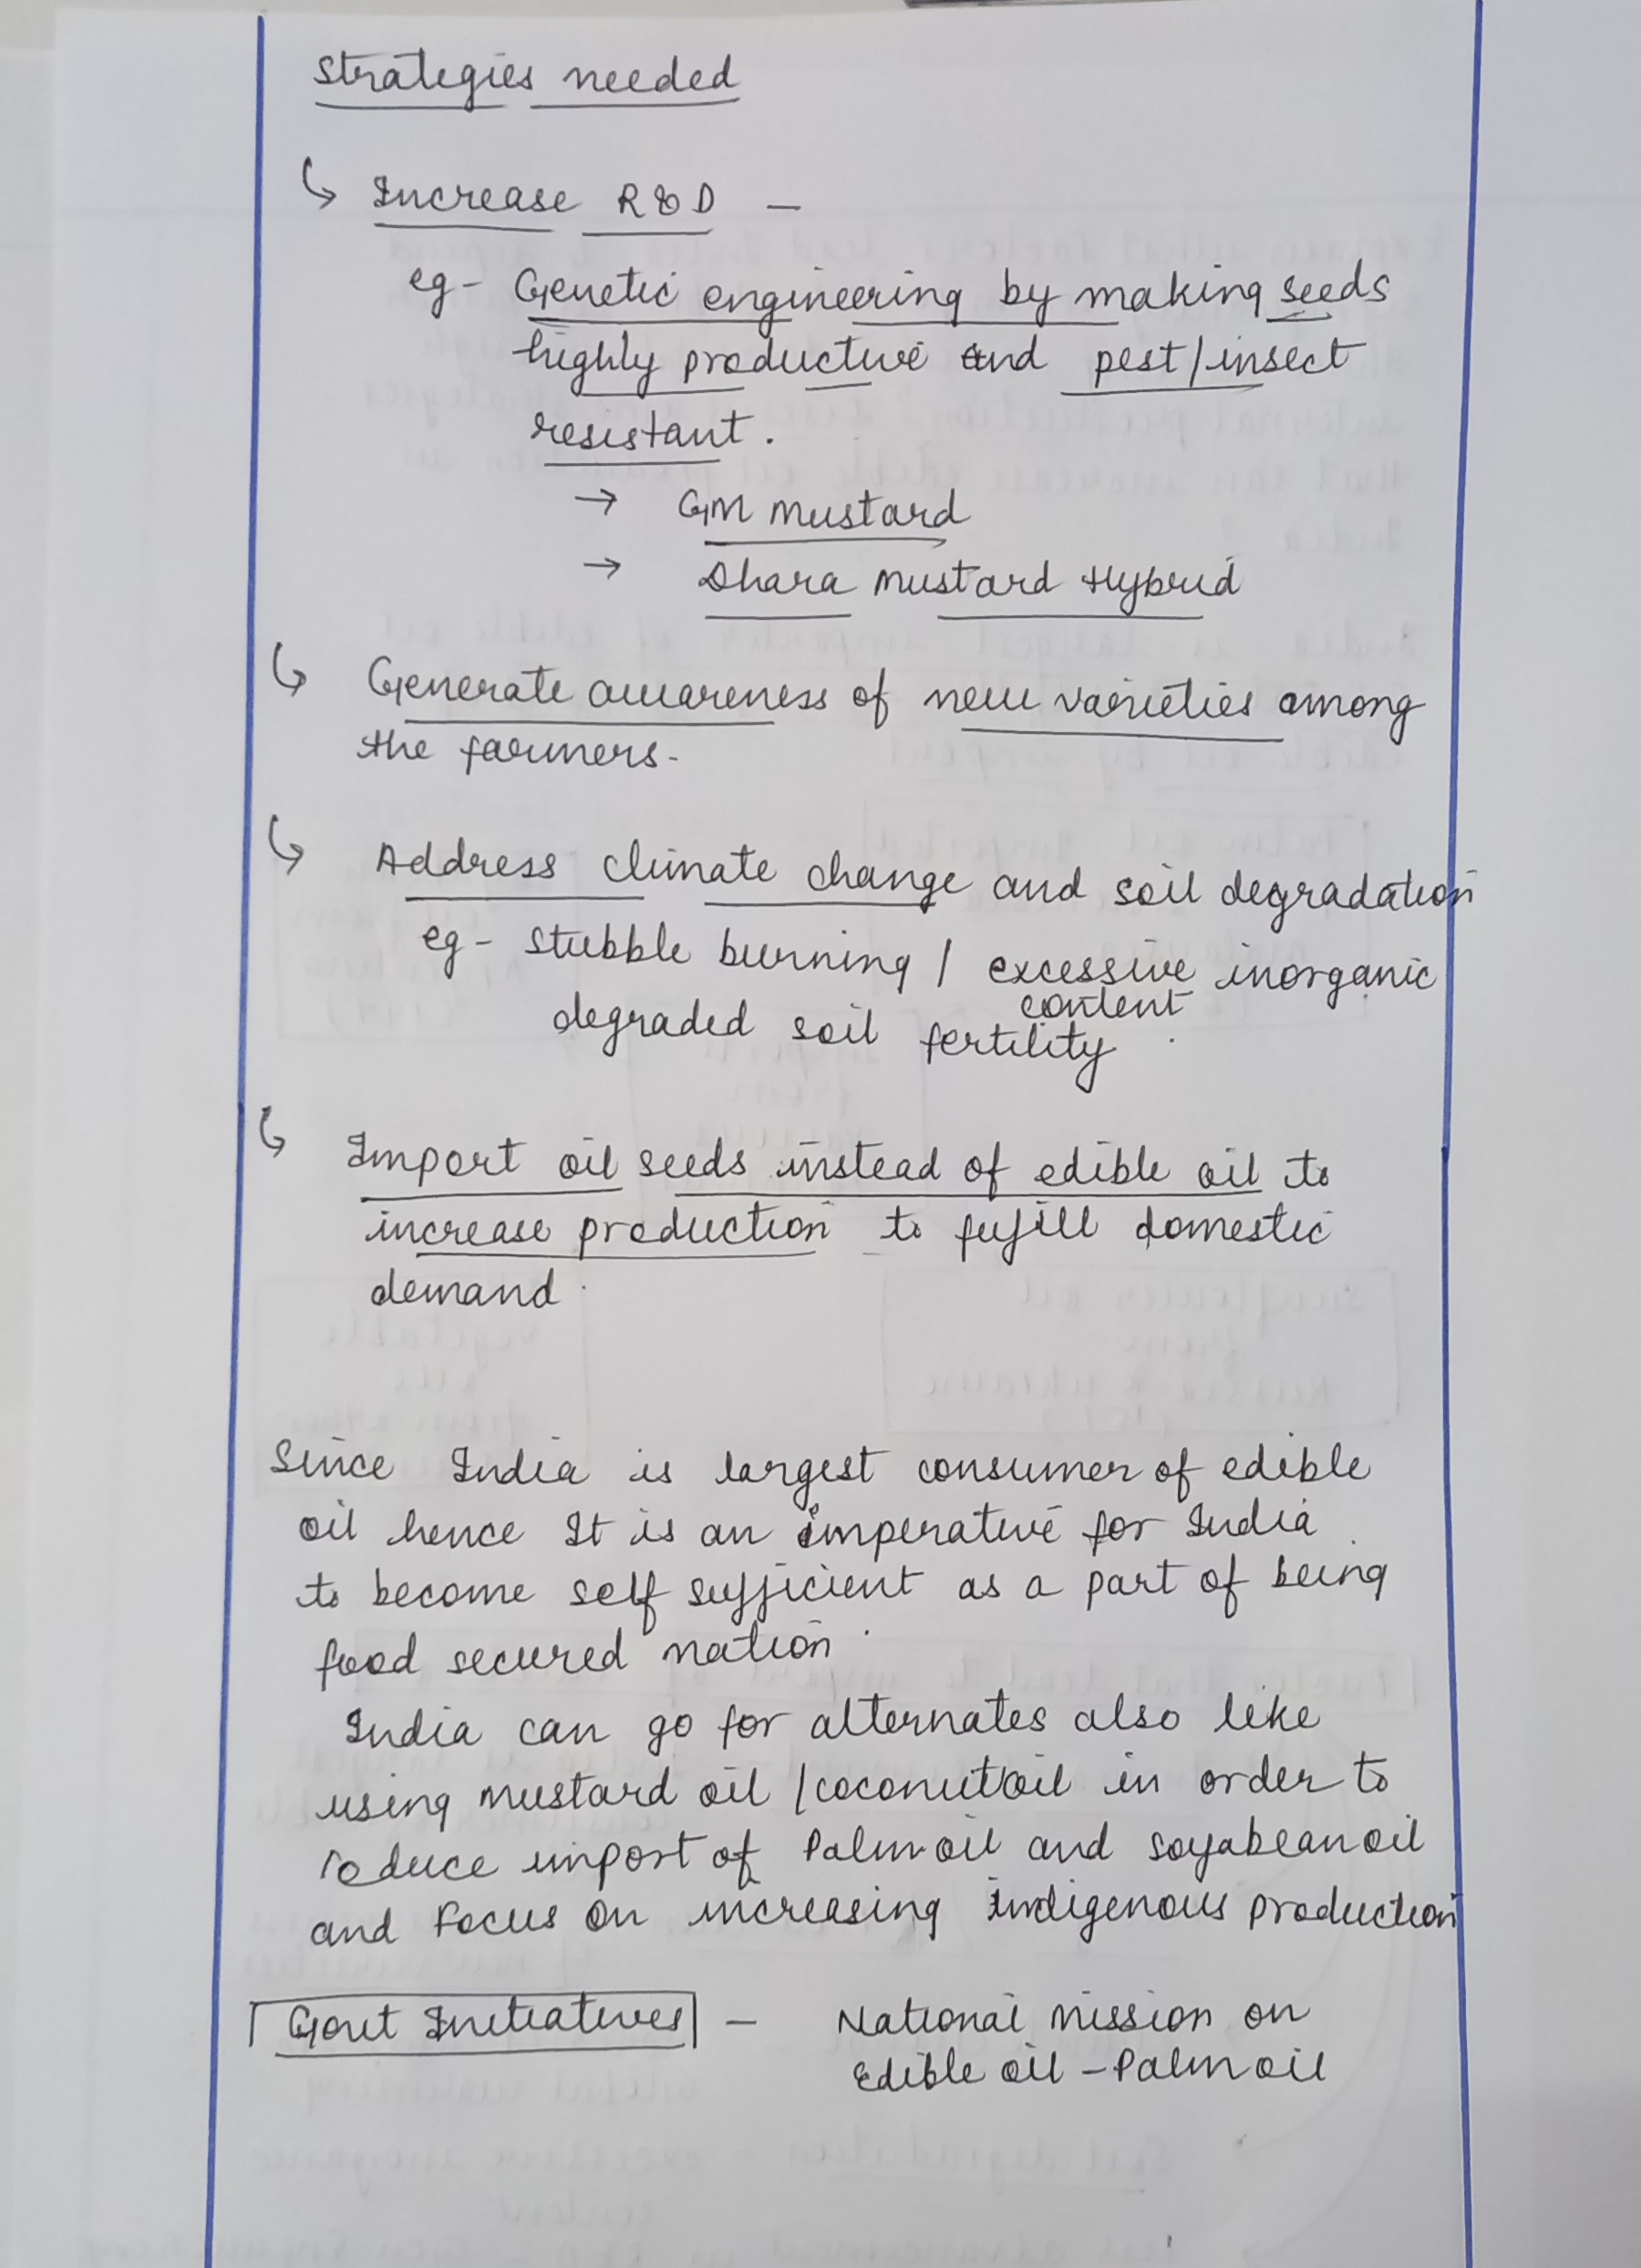 Strategies needed
↳ Increase R&D —
eg - Genetic engineering by making seeds
highly productive and pest/insect
resistant.
→ GM Mustard
→ Dhara Mustard Hybrid
↳ Generate awareness of new varieties among
the farmers.
↳ Address climate change and soil degradation
eg - stubble burning / excessive inorganic
content
degraded soil fertility.
↳ Import oil seeds instead of edible oil to
increase production to fufill domestic
demand.
Since India is largest consumer of edible
oil hence It is an imperative for India
to become self sufficient as a part of being
food secured nation.
India can go for alternates also like
using mustard oil /coconut oil in order to
reduce import of Palm oil and soyabean oil
and Focus on increasing indigenous production
Govt Initiatives — National Mission on
Edible oil - Palm oil